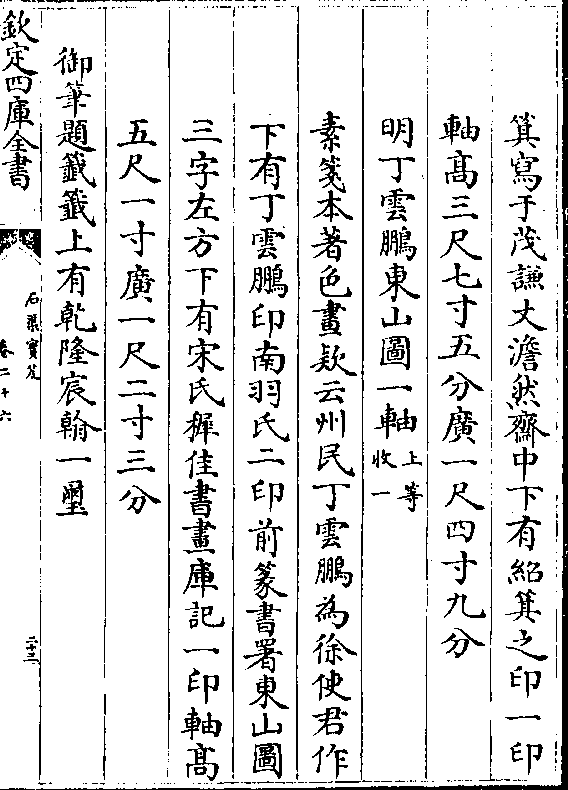 箕寫于茂謙丈澹然齋中下有紹箕之印一印
軸高三尺七寸五分廣一尺四寸九分
明丁雲鵬東山圖一軸上等收一
素箋本著色畫欵云州民丁雲鵬為徐使君作
下有丁雲鵬印南羽氏二印前篆書署東山圖
三字左方下有宋氏樨佳書畫庫記一印軸高
五尺一寸廣一尺二寸三分
御筆題籤籤上有乾隆宸翰一璽
欽定四庫全書
石渠寶笈
卷二十六
二十三